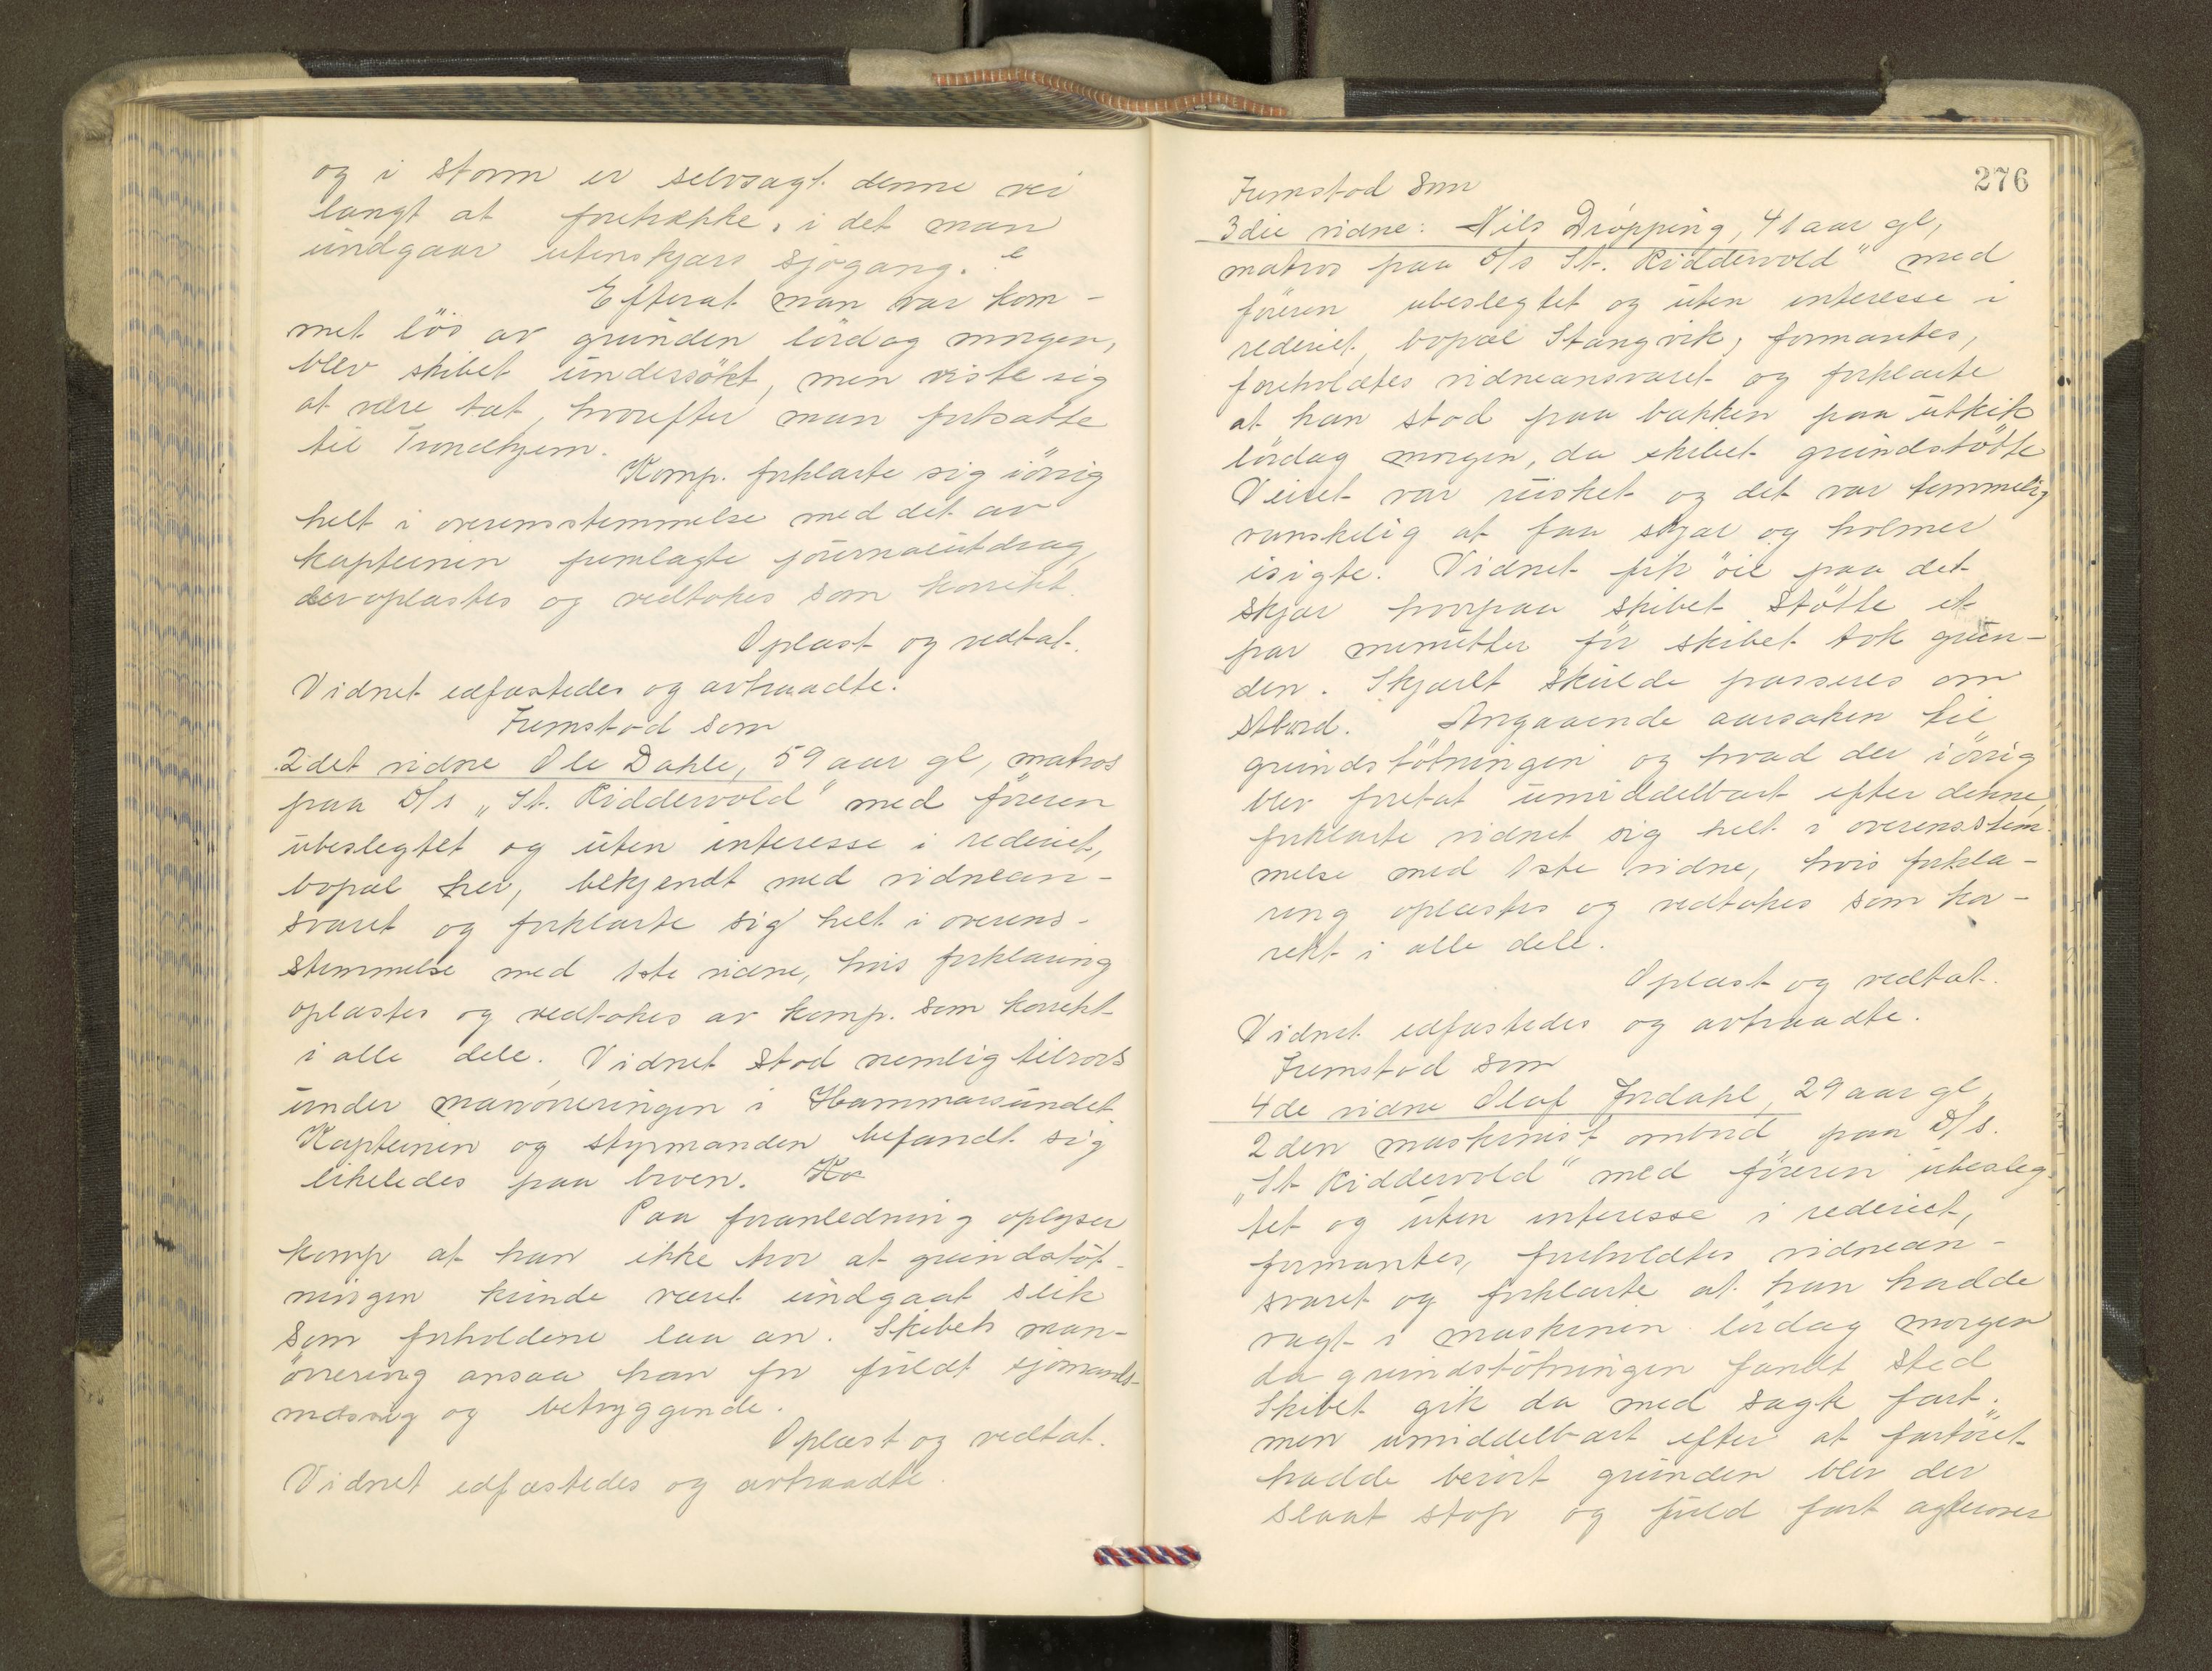 og i storm er selvsagt denne vei
langt at foretrække, i det man
undgaar utenskjærs sjøgang.
Efterat man var kom-
met løs av grunden lördag morgen,
blev skibet undersökt, men viste sig
at være tæt, hvorefter man fortsatte
til Trondhjem.
Komp. forklarte sig iörrig
helt i overensstemmelse med det av
kapteinen fremlagte journalutdrag,
der oplæstes og vedtokes som korrekt.
Oplæst og vedtat.
Vidnet edfæstedes og avtraadte.
Fremstod som
2det vidne Ole Dahle, 59 aar gl, matros
paa D/s „St. Riddervold" med föreren
ubeslegtet og uten interesse i rederiet,
bopæl her, bekjendt med vidnean-
svaret og forklarte sig helt i overens-
stemmelse med 1ste vidne, hvis forklaring
oplæstes og vedtokes av komp. som korrekt
i alle dele. Vidnet stod nemlig tilrors
under manövreringen i Hammarsundet
Kapteinen og styrmanden befandt sig
likeledes paa broen. Ko
Paa foranledning oplyser
komp at han ikke tror at grundstöt-
ningen kunde været undgaat slik
som forholdene laa an. Skibets man-
övrering ansaa han for fuldt sjömands-
mæssig og betryggende.
Oplæst og vedtat.
Vidnet edfæstedes og avtraadte.
276
Fremstod som
3die vidne: Nils Dröpping, 41 aar gl,
matros paa D/s St. Riddervold" med
föreren ubeslegtet og uten interesse i
rederiet, bopæl Stangvik, formantes,
foreholdtes vidneansvaret og forklarte
at han stod paa bakken paa utkik
lördag morgen, da skibet grundstötte
Veiret var rusket og det var temmelig
vanskelig at faa skjær og holmer
isigte. Vidnet fik öie paa det
skjær hvorpaa skibet stötte et
par minutter för skibet tok grun-
den. Skjæret skulde passeres om
stbord. Angaaende aarsaken til
grundstötningen og hvad der iörrig
blev foretat umiddelbart efter denne,
forklarte vidnet sig helt i overensstem-
melse med 1ste vidne, hvis forkla-
ring oplæstes og vedtokes som kor-
rekt i alle dele.
Oplæst og vedtat.
Vidnet edfæstedes og avtraadte.
Fremstod som
4de vidne Olaf Jordahl, 29 aar gl,
2den maskinist ombord paa D/s.
„St Riddervold" med föreren ubesleg-
tet og uten interesse i rederiet,
formantes, foreholdtes vidnean-
svaret og forklarte at han hadde
vagt i maskinen lördag morgen
da grundstötningen fandt sted
Skibet gik da med sagte fart.
men umiddelbart efter at fartöiet
hadde berört grunden blev der
slaat stop og fuld fart agterover